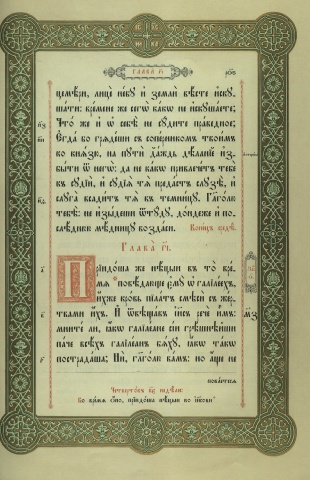 ГЛАВА̀ г҃і
цемѣри, лицѐ нб҃ꙋ и҆ землѝ вѣсте и҆скꙋ
шати: времене же сегѡ̀ ка́кѡ не и҆скꙋшаете;
Что́ же и҆ ѡ҆ себѣ̀ не сꙋдитѐ праведное;
Є҆гда́ бо грѧде́ши съ соперникомъ твоимъ
ко кнѧзю, на пꙋтѝ даждь дѣланїе и҆з
быти ѿ негѡ̀: да не како привлечетъ тебѐ
къ сꙋдїѝ, и҆ сꙋдїѧ̀ тѧ̀ предастъ слꙋзѣ̀, и҆
слꙋга̀ всадитъ тѧ̀ въ темницꙋ. Гл҃голю
тебѣ̀: не и҆зыдеши ѿтꙋдꙋ, дондеже и҆ по
слѣднюю мѣдницꙋ воздаси. Конецъ недѣ.
ГЛАВА̀ г҃і.
Прїидоша же нѣцыи въ то̀ вре
мѧ повѣдающе є҆мꙋ̀ ѡ҆ галїлеехъ,
и҆хже кровь пїлатъ смѣсѝ съ жер
твами и҆хъ. И҆ ѿвѣщавъ і҆и҃съ речѐ и҆мъ:
мните ли, ꙗ҆кѡ галїлеане сїи грѣшнѣйши
паче всѣхъ галїлеанъ бѧхꙋ, ꙗ҆кѡ такѡ
пострадаша; Нѝ, гл҃голю вамъ: но а҆ще не
покаетесѧ
во время ѻно, прїидоша нѣцыи ко і҆и҃сови